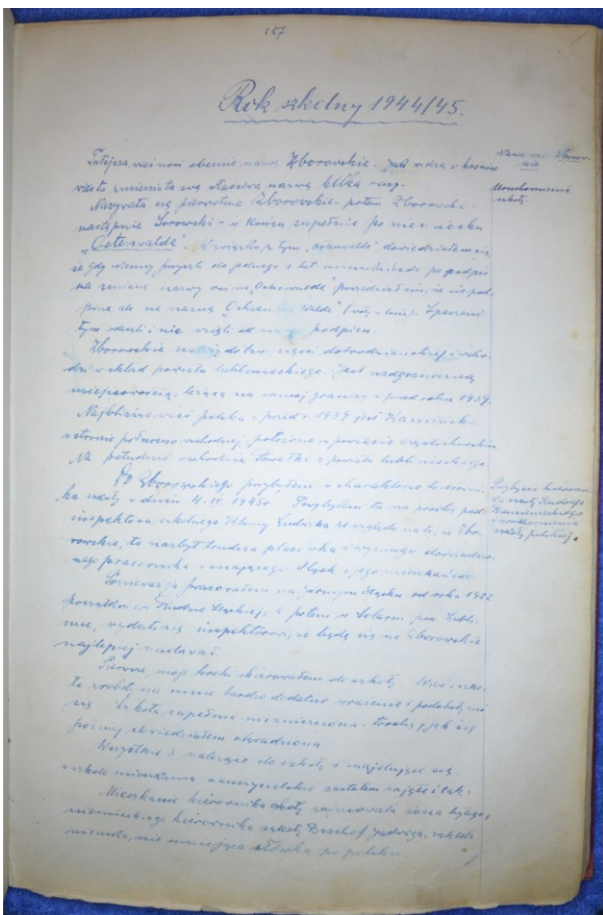 187
Rok szkolny 1944/45.
Tutejsza wieś nosi obecnie nazwę Zborowskie.
zmieniała swą nazwę kilka razy.
Nazywała się pierwotnie Zborowskie potem Zborowski
następnie Sorowski - w końcu zupełnie po niemiecku
"Ostenwalde". W związku z tym dowiedziałem się,
że gdy niemcy przyszli do jednego z tut. po podpis
na zmianę nazwy wsi na Ostenwalde powiedział im, że nie pod-
pisze ale na nazwę "Ochsen walde" (wóły - las).
tym odeszli i nie wzięli od niego podpisu.
Zborowskie należy do tzw.
dzi w skład powiatu lublinieckiego. Jest nadgraniczną
miejscowością, leżącą na samej granicy z przed roku 1939.
Najbliższa wieś polska z przed r. 1939 jest Kamińsko
w stronie północno wschodniej położone w powiecie częstochowskim.
Na południe wschodnie Pawełki z powiatu lublinieckiego.
Do Zborowskiego przybyłem w charakterze kierowni-
ka szkoły w dniu 4.IV.1945r. Przybyłem tu na prośbę pod-
inspektora szkolnego Ludwika ze względu na to, że Zbo-
rowskie, to nazbyt trudna placówka i wymaga doświadczo-
nego pracownika znającego Śląsk i jego mieszkańców.
Ponieważ ja pracowałem na Górnym Śląsku od roku 1922
początkowo w Rudzie Śląskiej, a potem w pow. Lubli-
niec, wydało się inspektorowi, że będę się na Zborowskie
najlepiej nadawał.
Pierwsze moje kroki skierowałem do szkoły.
ta zrobiła na mnie bardzo dodatnie wrażenie i podobała mi
się. Szkoła zupełnie niezniszczona, trochę, jak się
później dowiedziałem okradziona.
Wszystkie należące do szkoły a znajdujące się
w szkole mieszkania nauczycielskie zastałem zajęte
Mieszkanie kierownika szkoły zajmowała żona byłego,
niemieckiego kierownika szkoły Bischof Jadwiga,
niemka, nie umiejąca słówka po polsku.
Nazwa wsi Zborow-
skie
Uruchomienie
szkoły.
Przybycie kierowni-
ka szkoły Rudolfa
Kamińskiego
i uruchomienie
szkoły polskiej.